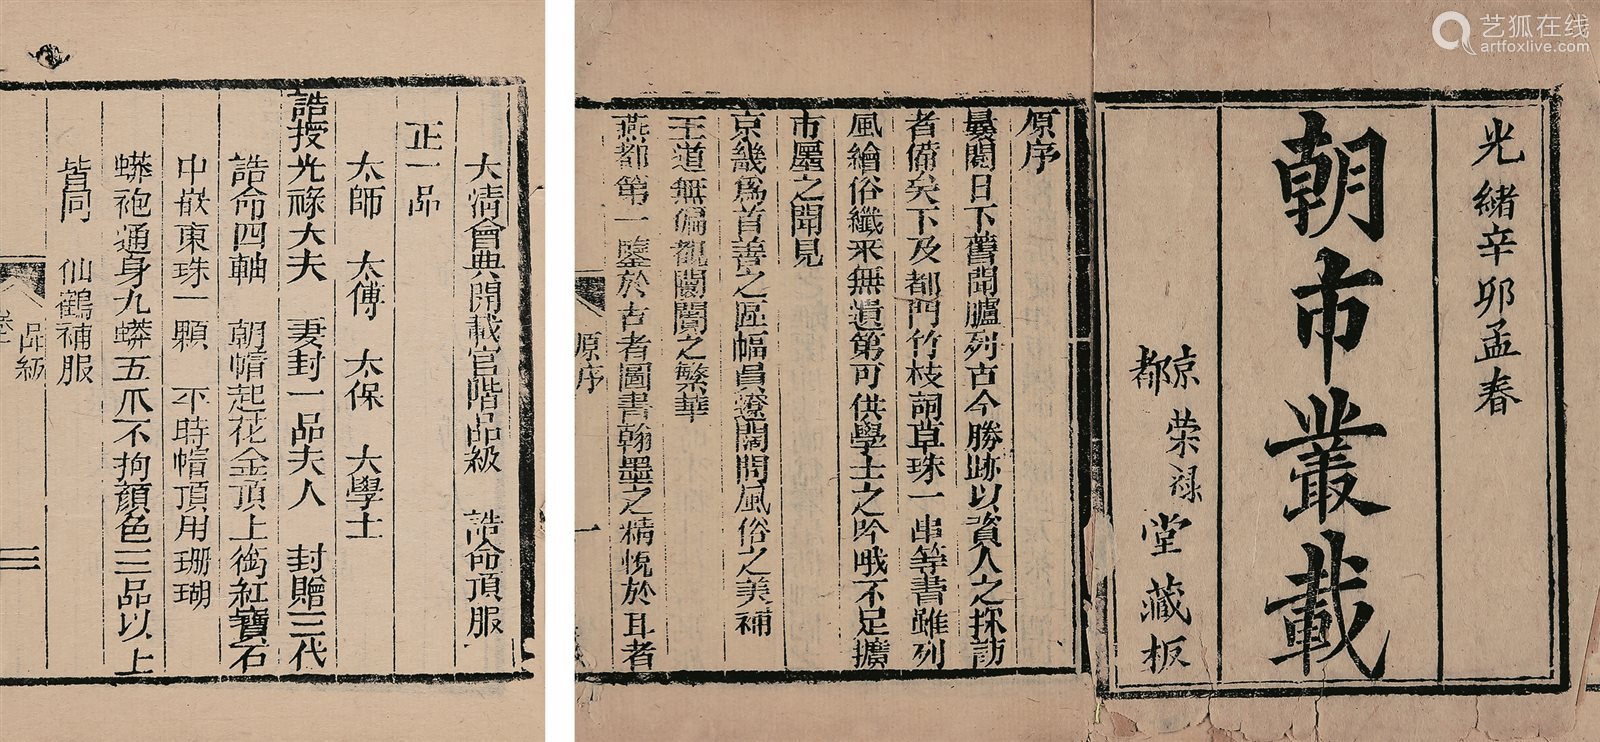 艺狐在线
artfoxlive.com
光緒辛卯孟春
朝市叢載
京都榮祿堂藏板
原序
曩閱日下舊聞臚列古今勝跡以資人之採訪
者備矣下及都門竹枝詞草珠一串等書雖列
風繪俗纖釆無遺第可供學士之吟哦不足擴
市廛之聞見
京畿為首善之區幅員遼闊閭風俗之美補
王道無偏觀闤闠之繁華
燕都第一鑒於古者圖書翰墨之精悅於耳者
原序
一
大清會典開載官階品級 誥命頂服
正一品
太師 太傅 太保 大學士
誥授光祿大夫 妻封一品夫人 封贈三代
誥命四軸 朝帽起花金頂上銜紅寶石
中嵌東珠一顆 不時帽頂用珊瑚
蟒袍通身九蟒五爪不拘顏色三品以上
皆同 仙鶴補服
品級
三